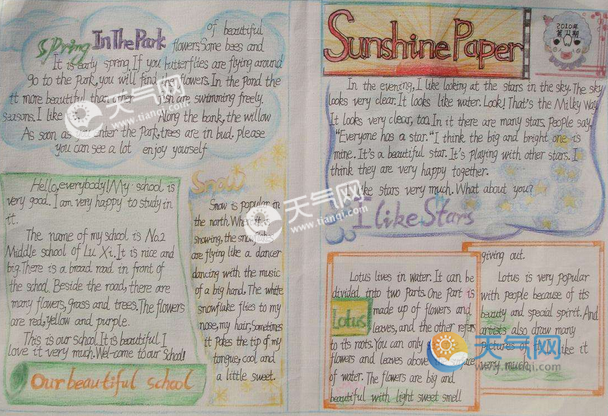 Spring In The Park
of beautiful
flowers. Some bees and
It is early spring. If you
butterflies are flying around
go to the park, you will find
flowers. In the pond the
it more beautiful than other
fish are swimming freely.
seasons. I like
Along the bank, the willow
As soon as enter the Park, trees are in bud, please
you can see a lot enjoy yourself
Hello, everybody! My school is
very good. I am very happy to study in
it.
The name of my school is No.2
Middle school of Lu Xi. It is nice and
big. There is a broad road in front of
the school. Beside the road, there are
many flowers, grass and trees. The flowers
are red, yellow and purple.
This is our school. It is beautiful. I
love it very much. Welcome to our School!
Our beautiful school
Snow
Snow is popular in
the north. When it is
snowing, the snow
are flying like a dancer
dancing with the music
of a big hand. The white
snowflake flies to my
nose, my hair, Sometimes
it pokes the tip of my
tongue, cool and
a little sweet.
Sunshine Paper
In the evening, I like looking at the stars in the sky. The sky
looks very clear. It looks like water. Look! That's the Milky Way
It looks very clear, too. In it there are many stars. People say,
"Everyone has a star." I think the big and bright one is
mine. It's a beautiful star. It's playing with other stars. I
think they are very happy together.
I like stars very much. What about you?
I like Stars
Lotus
Lotus lives in water. It can be
divided into two parts. One part is
made up of flowers and
leaves, and the other refers
to its roots. You can only
flowers and leaves above
of water. The flowers are big and
beautiful with light sweet smell
giving out.
Lotus is very popular
with people because of its
beauty and special spirit. And
artists also draw many
pictures of like it
very much.
天气网
www.tianqi.com
天气网
www.tianqi.com
天气网
www.tianqi.com